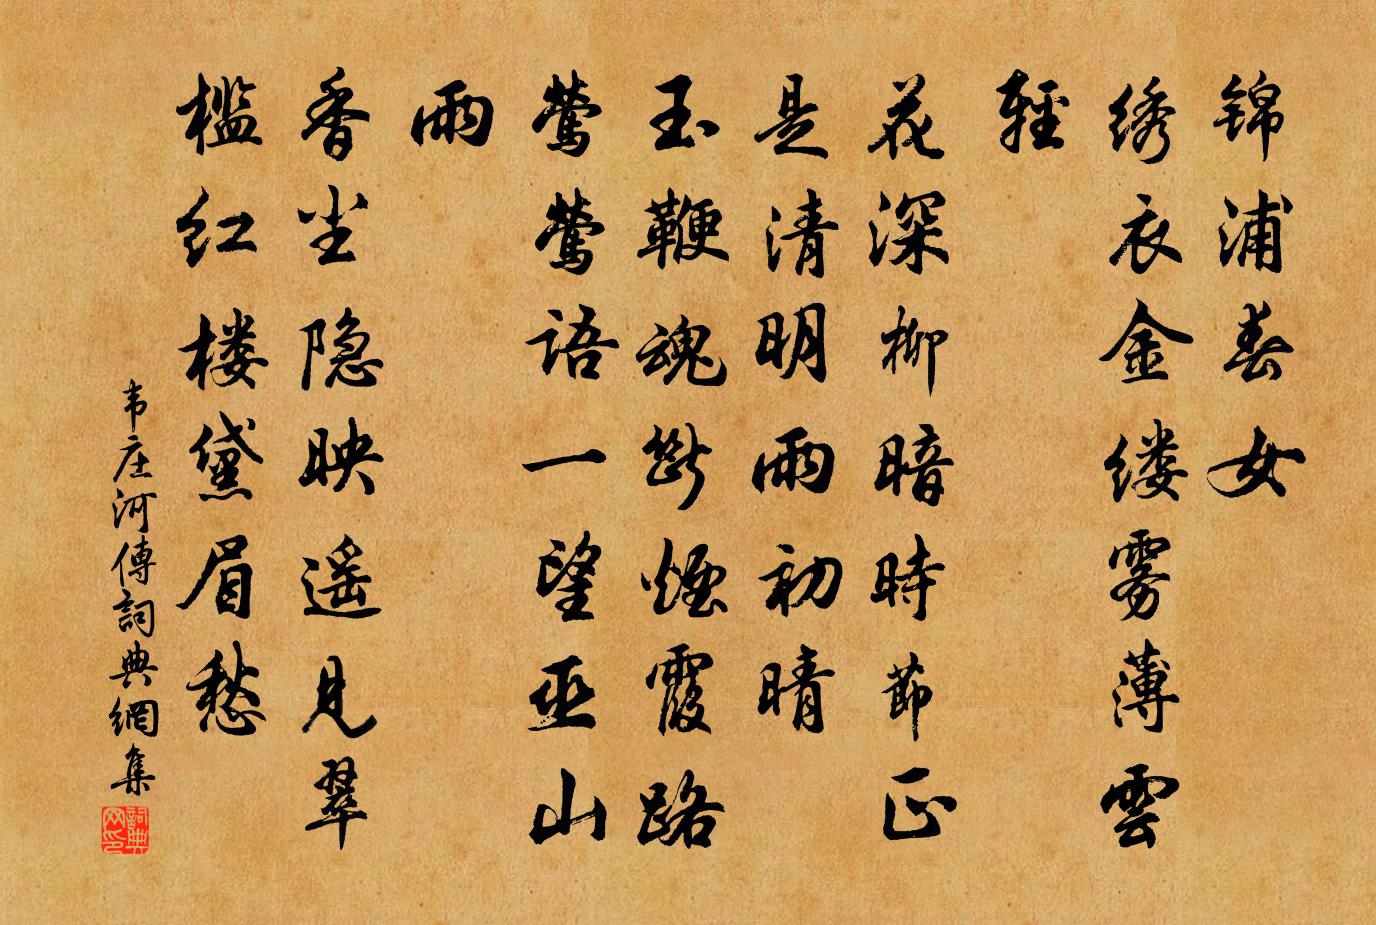 锦浦春女
绣衣金缕雾薄雲
輕
花深柳暗時節正
是清明雨初晴
玉鞭魂斷煙霞路
莺莺語一望巫山
雨
香尘隐映遥见翠
檻红楼黛眉愁
韦庄河傳詞典網集
詞典网印